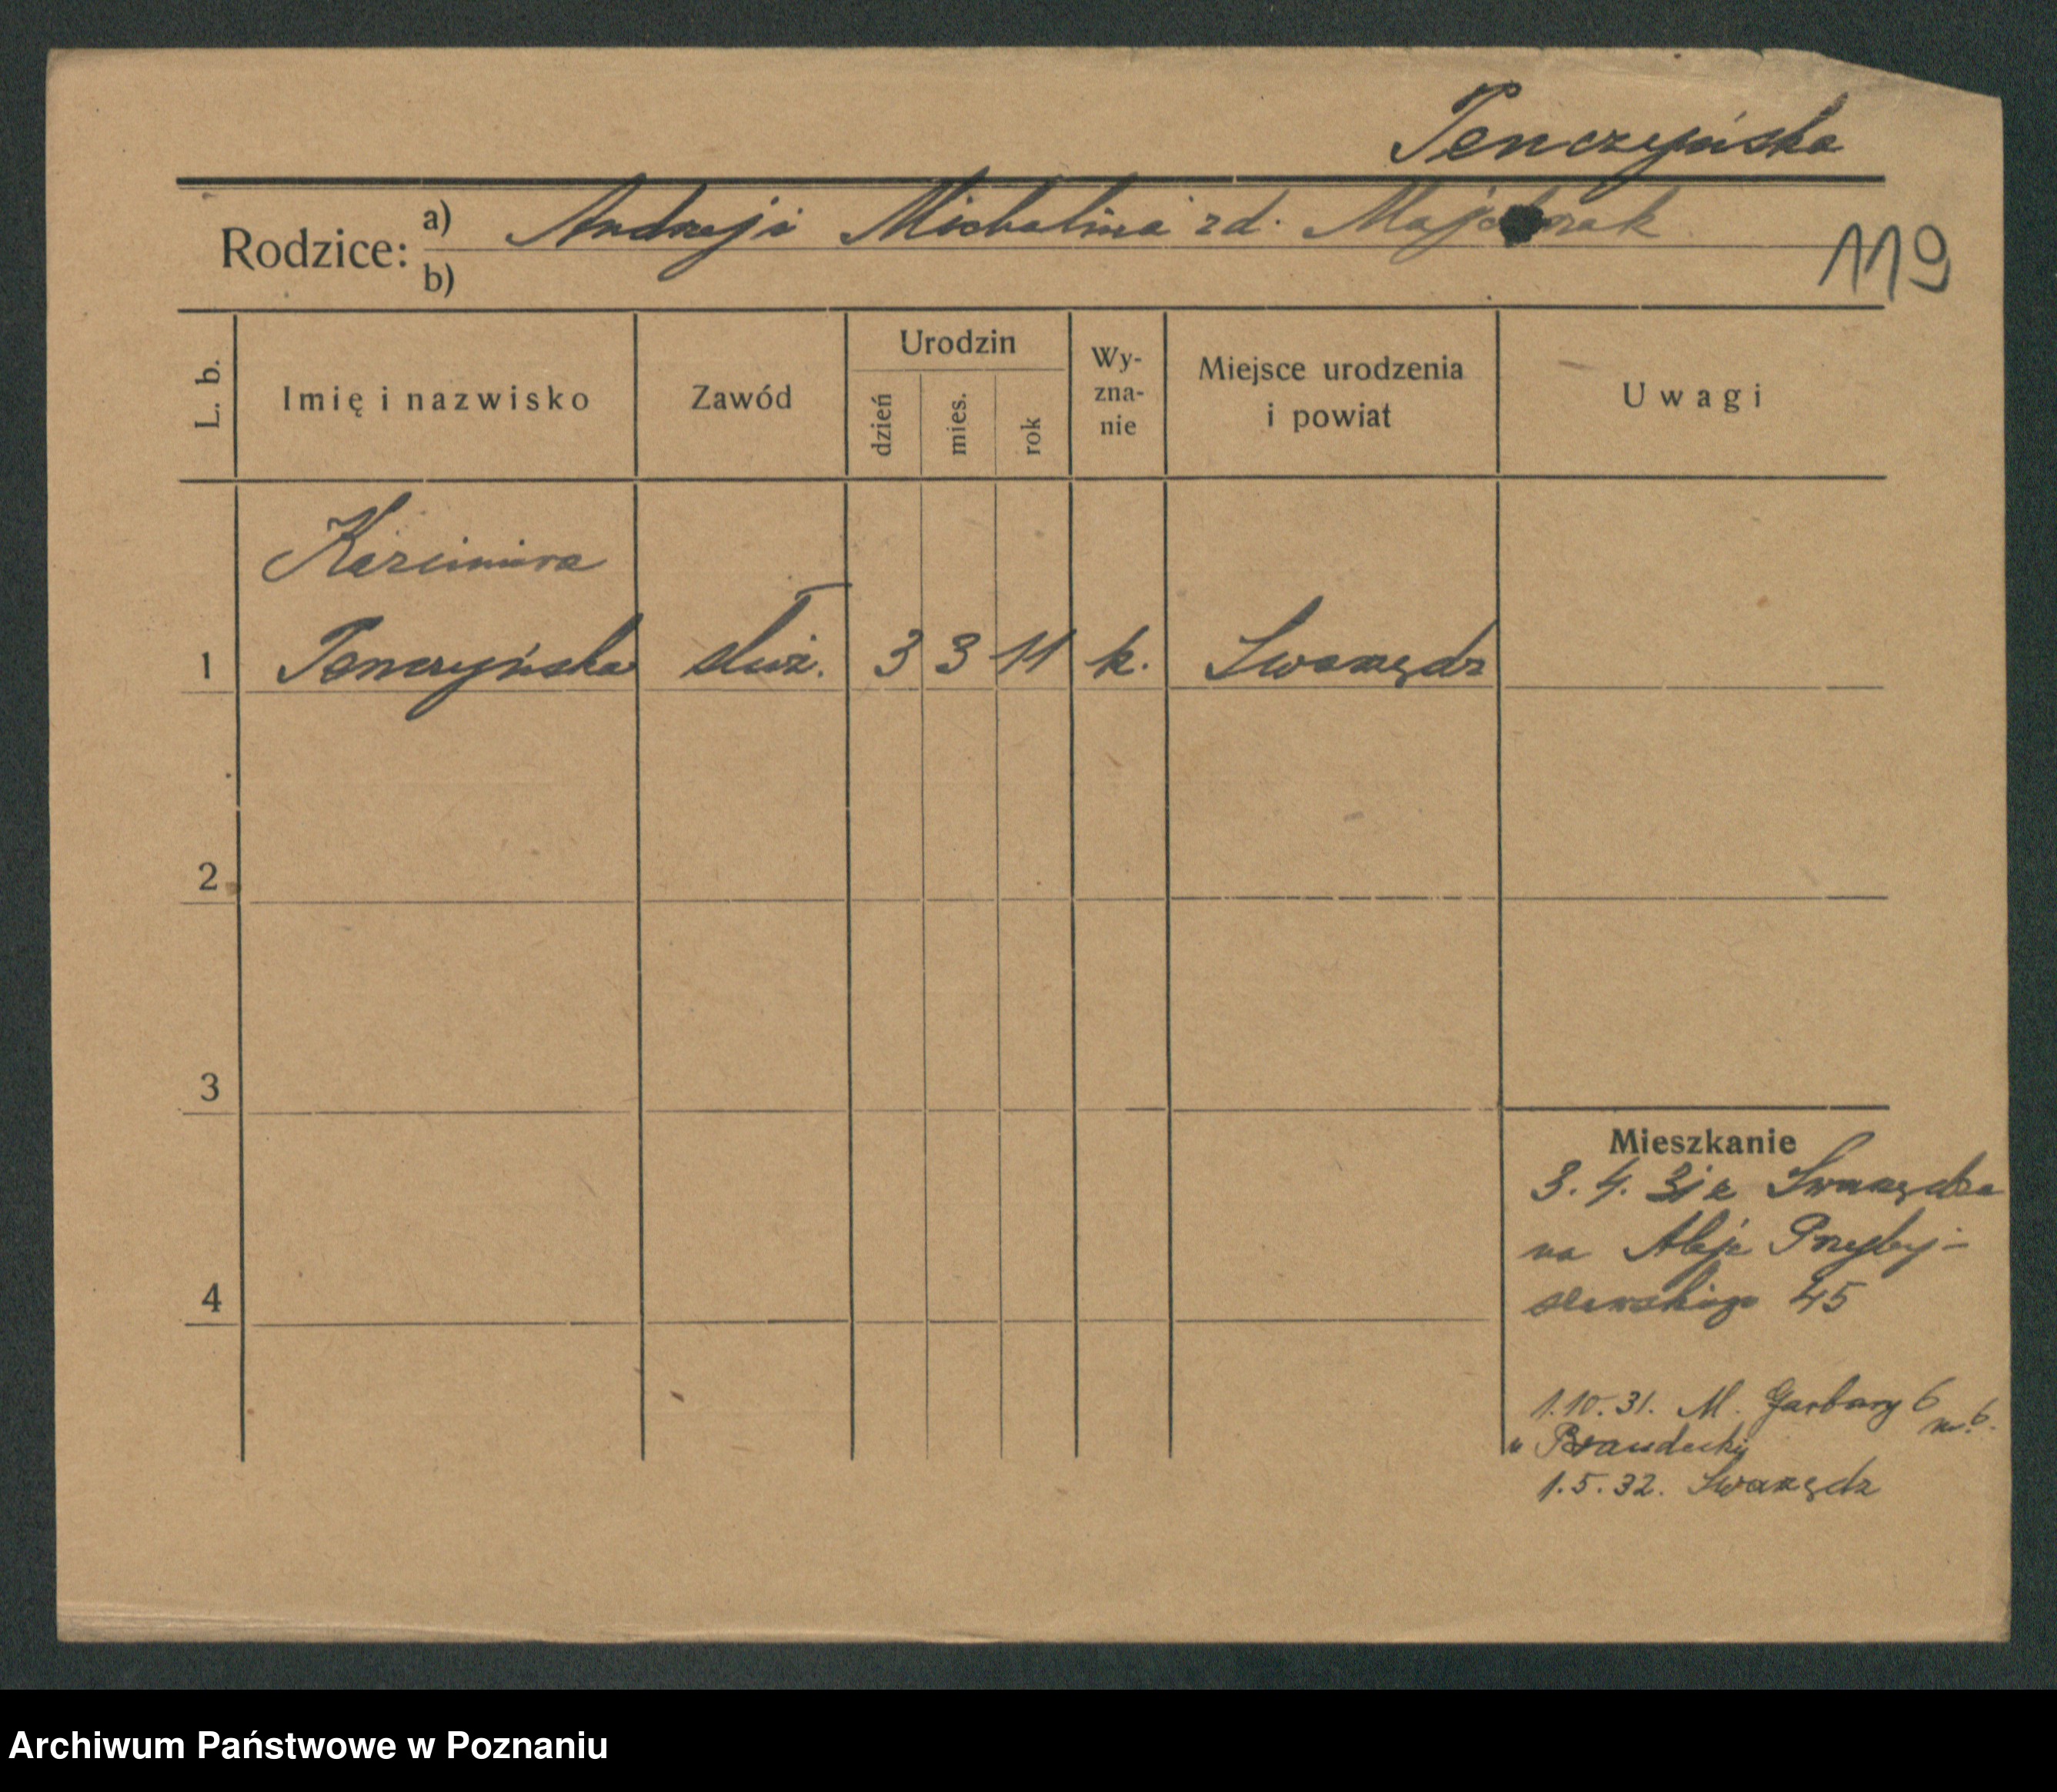 Penczyńska
Rodzice: a) Andrzej i Michalina zd.
b)
119
L. b.
Imię i nazwisko
Zawód
Urodzin
dzień
mies.
rok
Wy-
zna-
nie
Miejsce urodzenia
i powiat
Uwagi
Kazimiera
1 Penczyńska służ. 3 3 11 k. Swarzędz
2
3
4
Mieszkanie
3. 4. 31 z Swarzędza
na Aleje Przyby-
szewskiego 45
1.10.31. M. Garbary 6 m. 6.
u Brandecki
1.5.32. Swarzędz
Archiwum Państwowe w Poznaniu